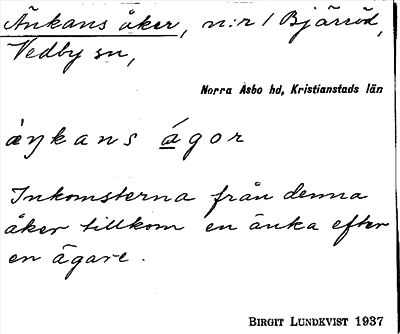 Änkans åker, n:r 1 Bjärröd,
Vedby sn,
Norra Åsbo hd, Kristianstads län
àŋkans ágor
Inkomsterna från denna
åker tillkom en änka efter
en ägare.
BIRGIT LUNDKVIST 1937